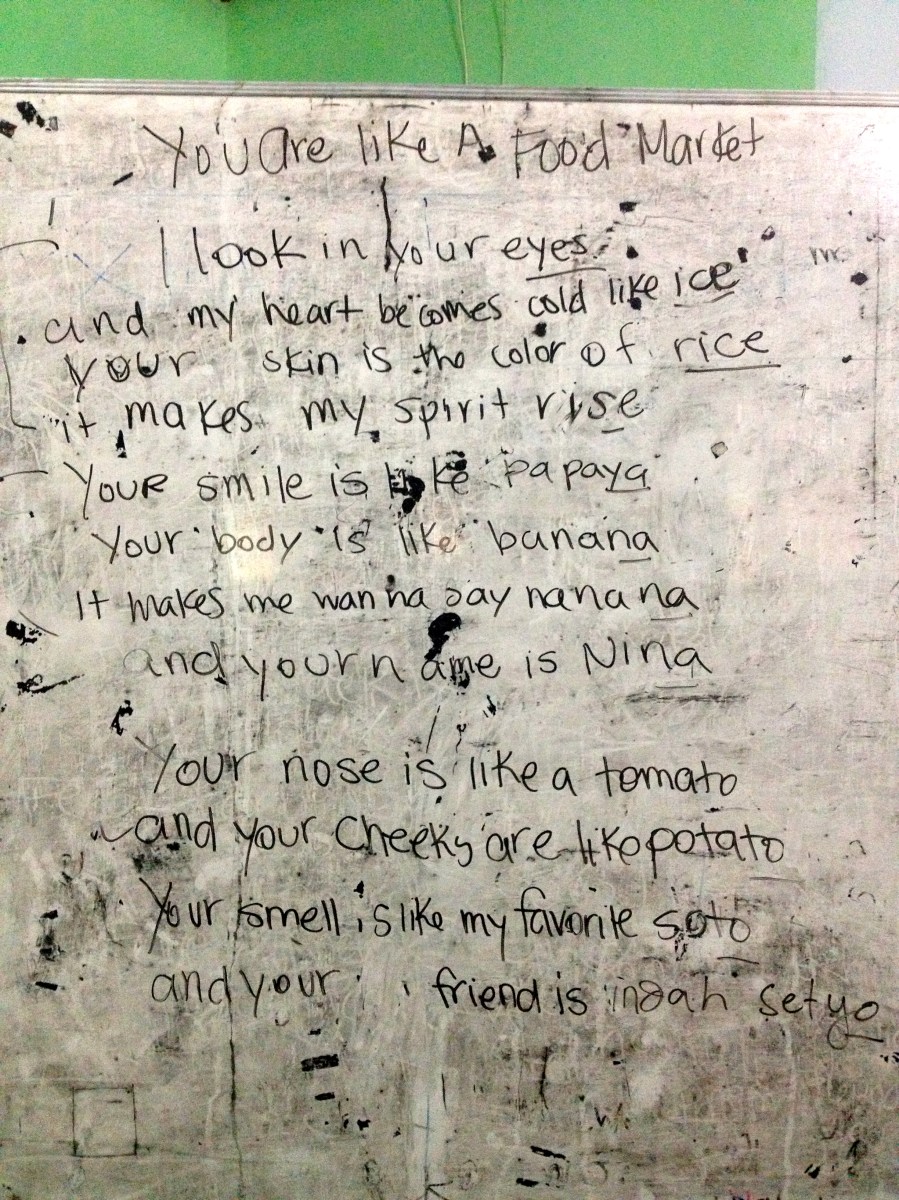 You are like A Food Market
I look in your eyes
and my heart becomes cold like ice
your skin is the color of rice
it makes my spirit rise
Your smile is like papaya
Your body is like banana
It makes me wanna say nanana
and your name is Nina
Your nose is like a tomato
and your cheeks are like potato
Your smell is like my favorite soto
and your friend is indah setyo